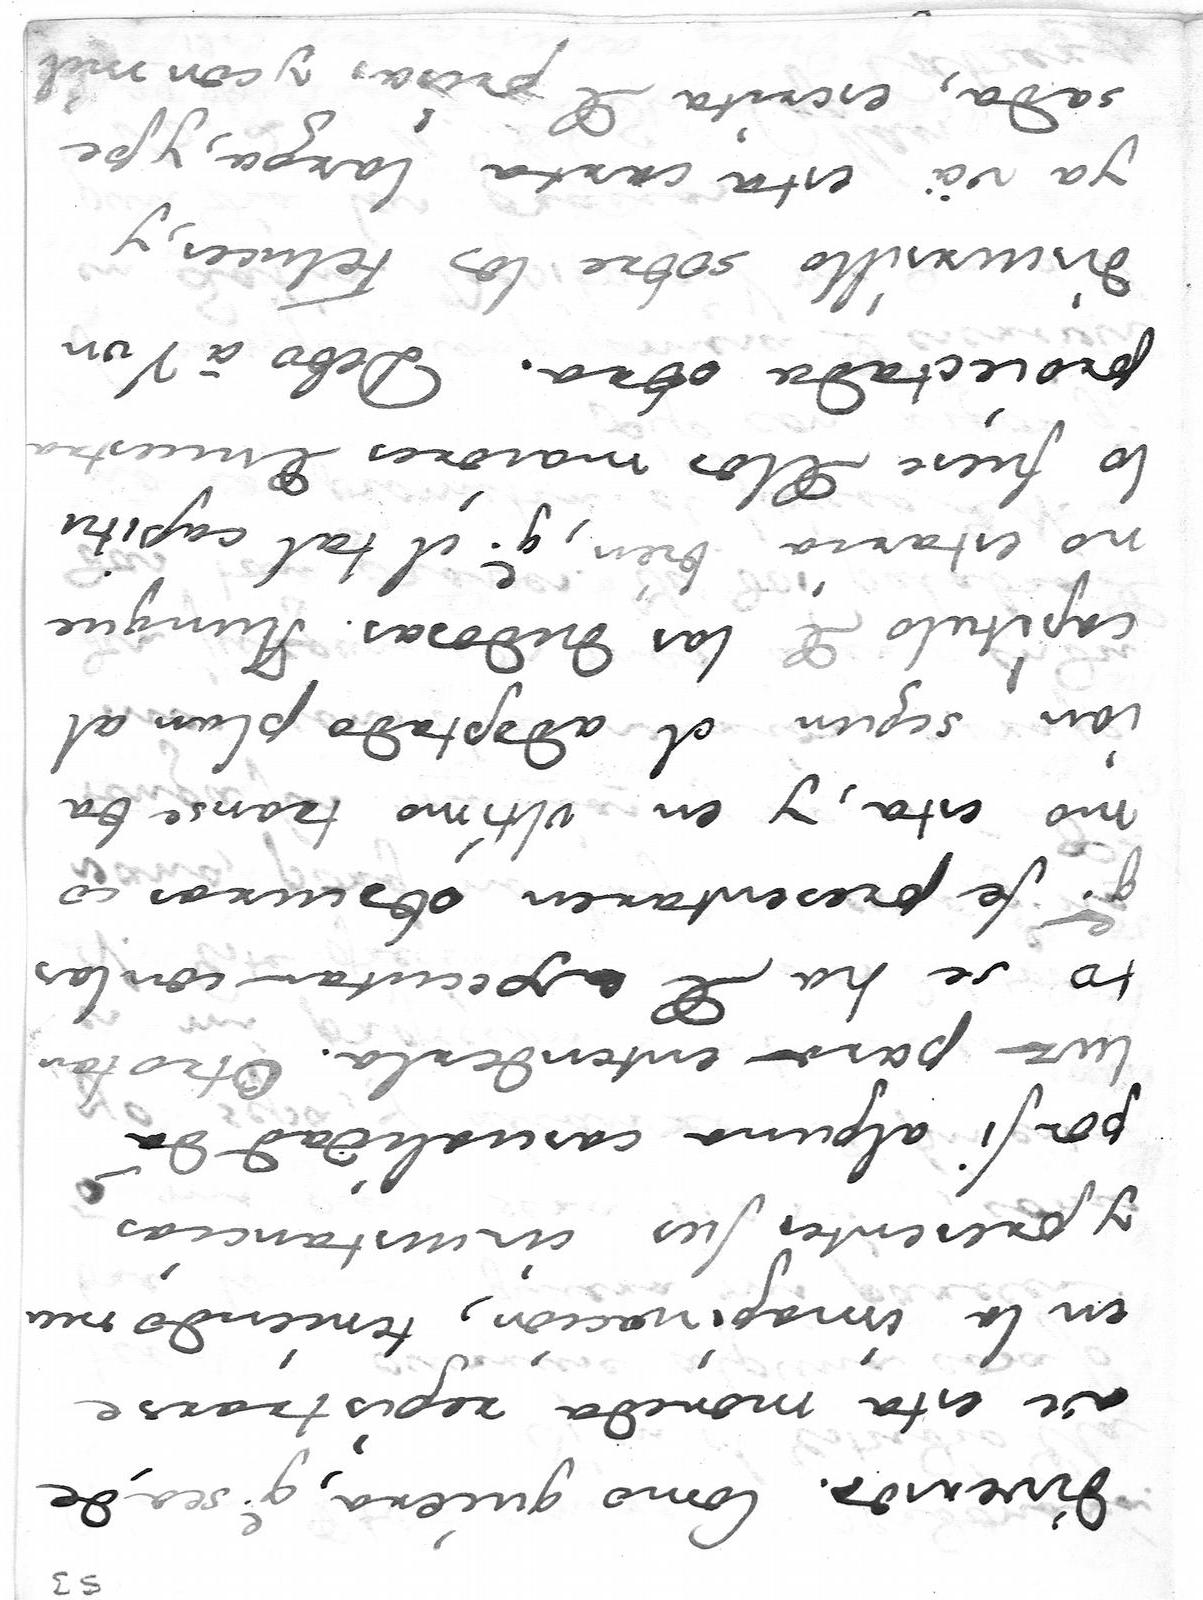 53
diverso. Como quiera, q.e sea, de
ve esta moneda registrarse
en la imaginacion, teniendo mui
y presentes sus circunstancias
por si alguna casualidad da
luz para entenderla. Otro tan
to se ha de egecutar con las
q.e se presentaren obscuras co
mo esta, y en ultimo transe ba
ian, segun el adoptado plan al
capitulo de las dudosas. Aunque
no estaria bien, q.e el tal capitu
lo fuese de los maiores de nuestra
proiectada obra. Debo à V un
discursillo sobre los Feluces, y
ya và esta carta larga, y pe
sada, escrita de prisa, y con mil